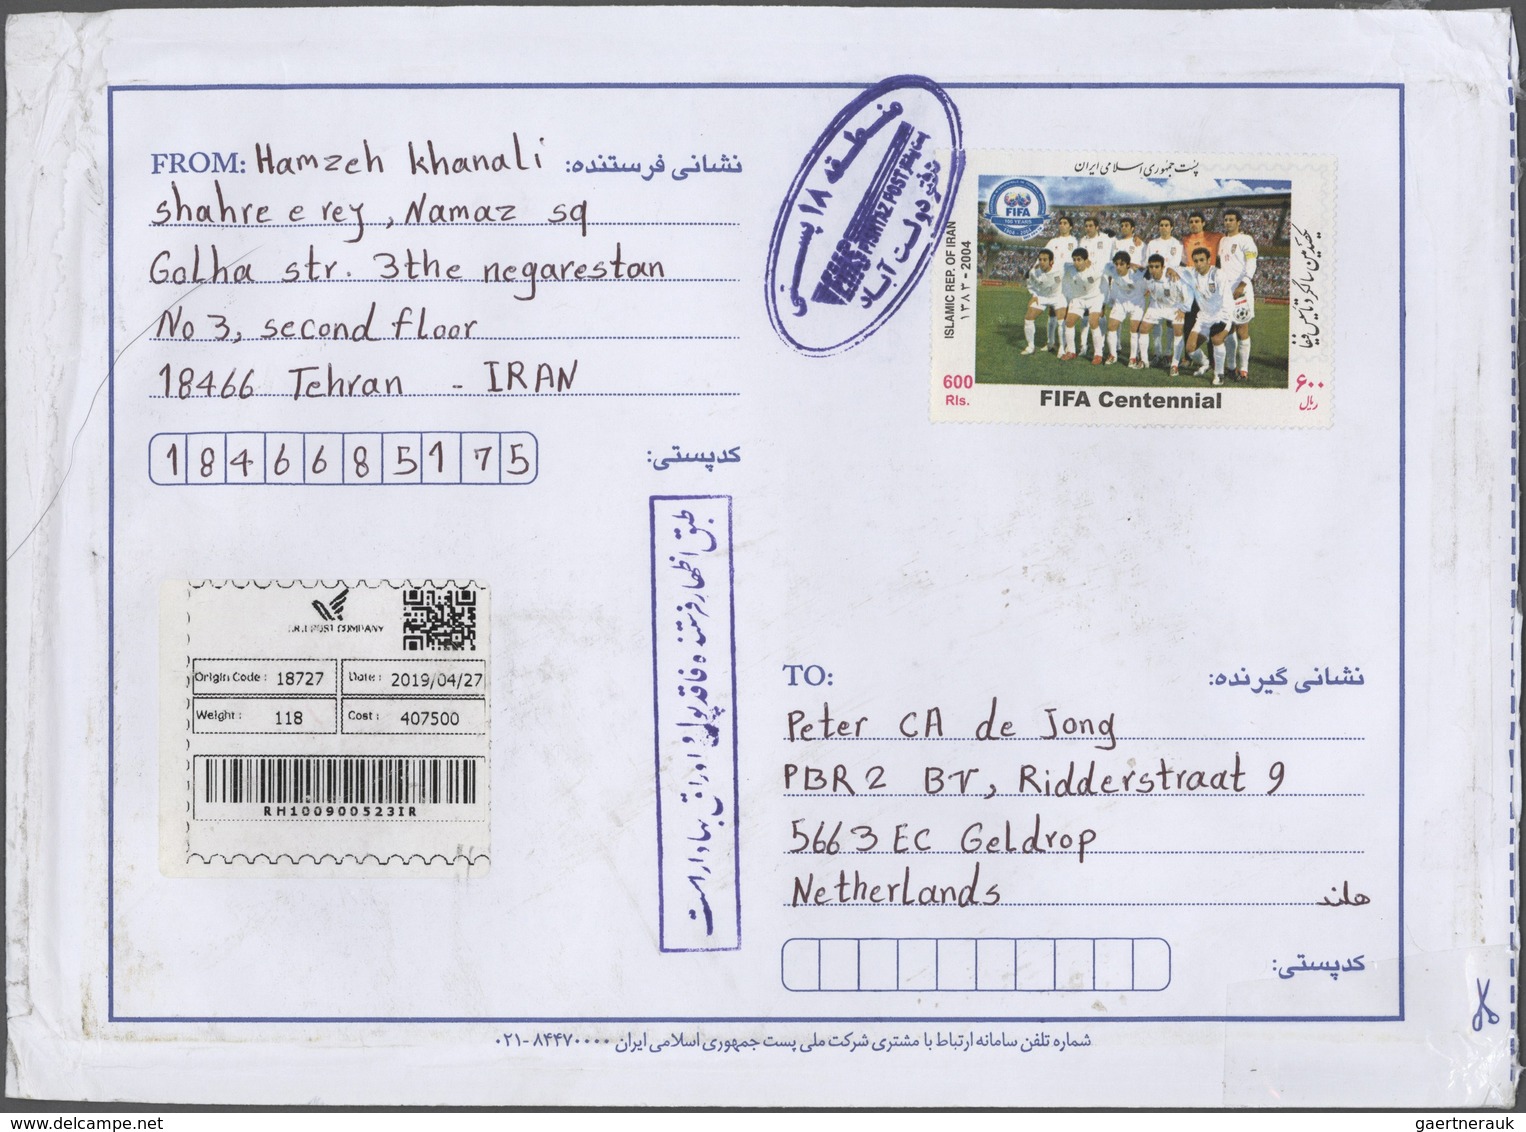 FROM: Hamzeh Khanali نشانی فرستنده:
Shahre e rey, Namaz sq
Golha str. 3the negarestan
No 3, second floor
18466 Tehran - IRAN
1846685175 کدپستی:
منطقه ۱۸ پستی
دفتر دولت آباد
پست جمهوری اسلامی ایران
FIFA
100 YEARS
1904 - 2004
ISLAMIC REP. OF IRAN
۱۳۸۳ - 2004
یکصدمین سالگرد تاسیس فیفا
600
Rls.
FIFA Centennial
۶۰۰
ریال
طبق اظهار فرستنده فاقد پول و اوراق بهادار است
I.R.I POST COMPANY
Origin Code : 18727 Date : 2019/04/27
Weight : 118 Cost : 407500
RH100900523IR
TO: نشانی گیرنده:
Peter CA de Jong
PBR2 BV, Ridderstraat 9
5663 EC Geldrop
Netherlands هلند
کدپستی:
شماره تلفن سامانه ارتباط با مشتری شرکت ملی پست جمهوری اسلامی ایران ۸۴۴۷۰۰۰۰-۰۲۱
gaertnerauk